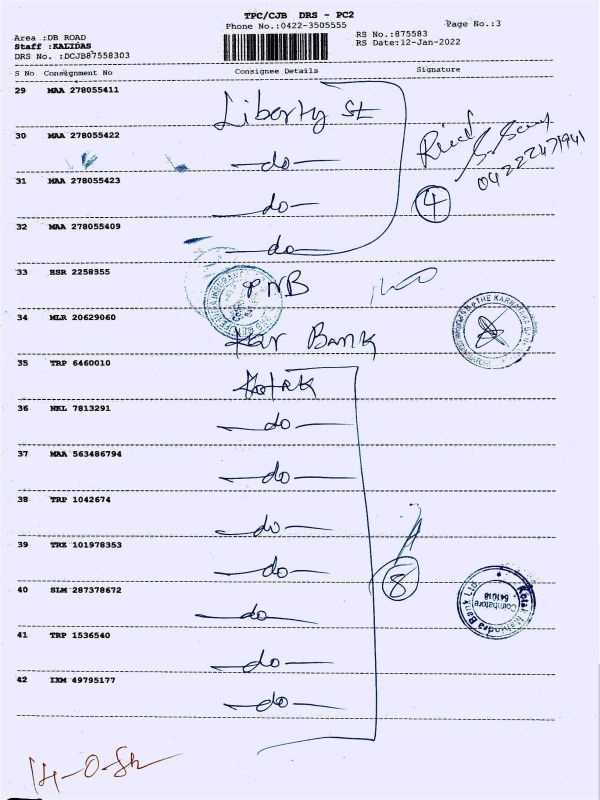 TPC/CJB DRS - PC2
Phone No.:0422-3505555
Page No.:3
Area :DB ROAD
Staff :KALIDAS
DRS No. :DCJB87558303
RS No.:875583
RS Date:12-Jan-2022
S No Consignment No Consignee Details Signature
29 MAA 278055411 Liberty St
30 MAA 278055422 -do-
31 MAA 278055423 -do-
4
32 MAA 278055409 -do-
33 BSR 2258355 PNB
34 MLR 20629060 Kar Bank
35 TRP 6460010 Kotak
36 NKL 7813291 -do-
37 MAA 563486794 -do-
38 TRP 1042674 -do-
39 TRZ 101978353 -do-
8
40 SLM 287378672 -do-
Kotak Mahindra Bank Ltd
Coimbatore
641018
41 TRP 1536540 -do-
42 IXM 49795177 -do-